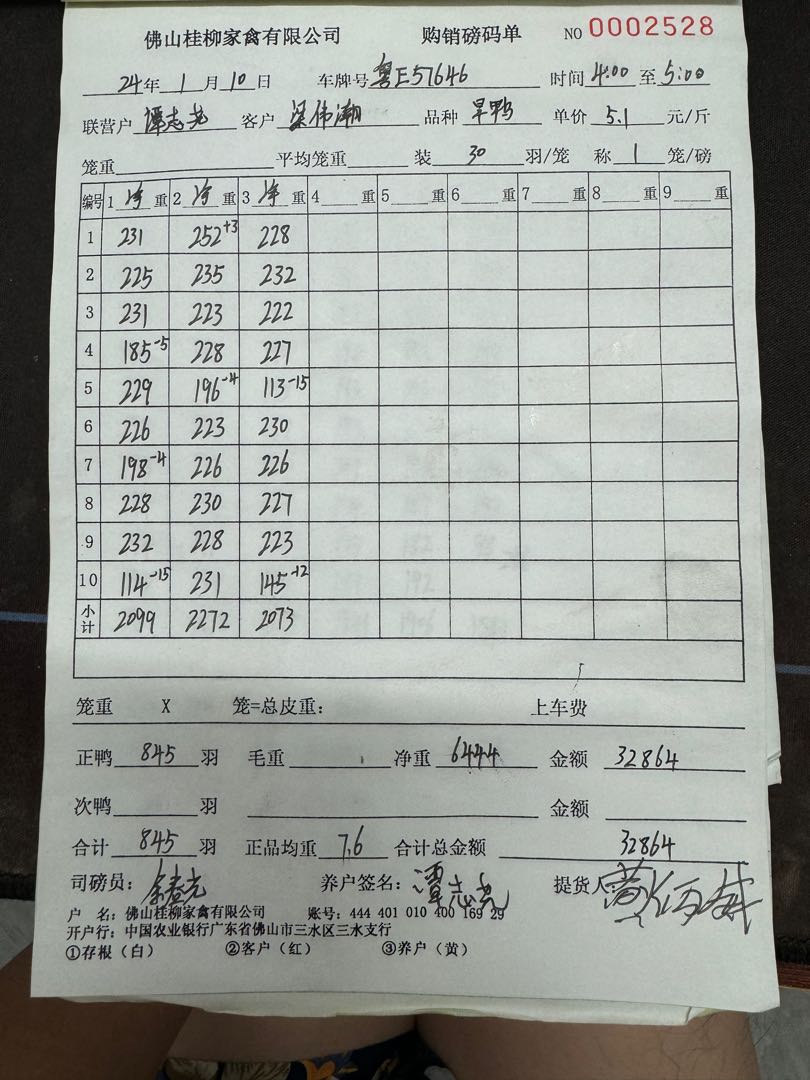 佛山桂柳家禽有限公司 购销磅码单 NO 0002528
24年 1月 10日 车牌号 粤E57646 时间 4:00 至 5:00
联营户 谭志尧 客户 梁伟潮 品种 旱鸭 单价 5.1 元/斤
笼重 平均笼重 装 30 羽/笼 称 1 笼/磅
编号 1 净 重 2 净 重 3 净 重 4 重 5 重 6 重 7 重 8 重 9 重
1 231 252+3 228
2 225 235 232
3 231 223 222
4 185-5 228 227
5 229 196-4 113-15
6 226 223 230
7 198-4 226 226
8 228 230 227
9 232 228 223
10 114-15 231 145-12
小计 2099 2272 2073
笼重 X 笼=总皮重： 上车费
正鸭 845 羽 毛重 净重 6444 金额 32864
次鸭 羽 金额
合计 845 羽 正品均重 7.6 合计总金额 32864
司磅员： 养户签名：谭志尧 提货人
户 名：佛山桂柳家禽有限公司 账号：444 401 010 400 169 29
开户行：中国农业银行广东省佛山市三水区三水支行
①存根（白） ②客户（红） ③养户（黄）